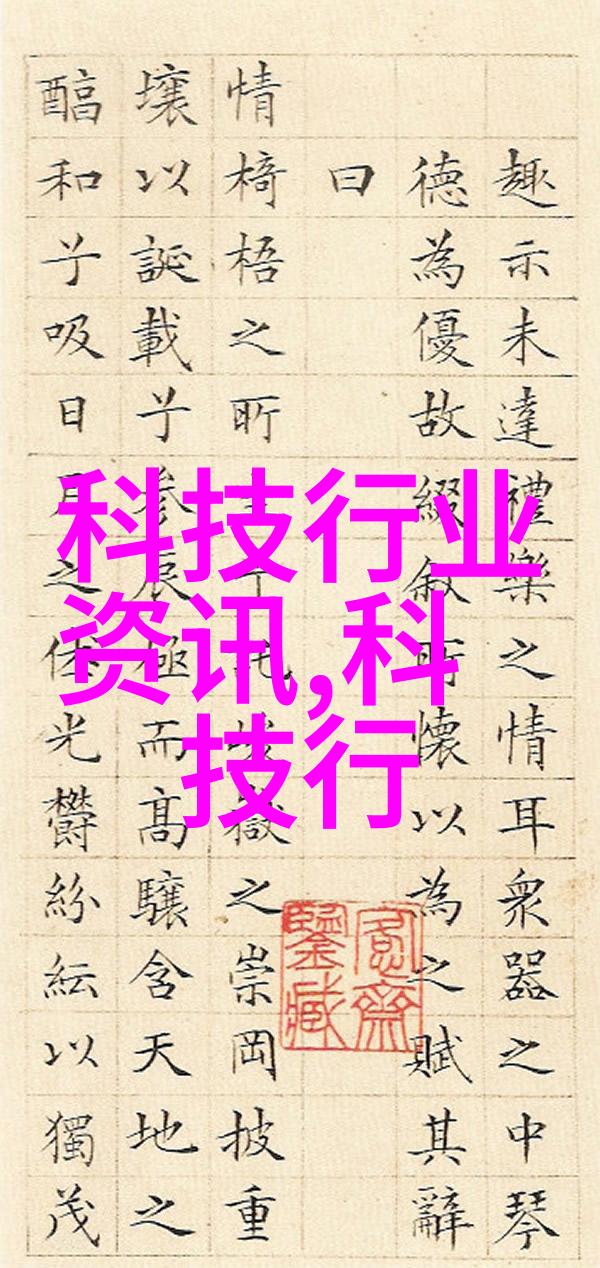 科技行业
资讯,科
技行
趣示未達禮樂之情耳衆器之中琴
德為優故綴叙所懷以為之賦其辭
曰
情椅梧之所生兮託峻嶽之崇岡披重
壤以誕載兮參辰極而高驤含天地之
醕和兮吸日月之休光鬱紛紜以獨茂
愙齋
鑒藏